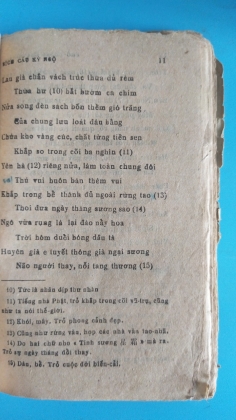 NGỌC CÁC KỲ NGỘ 11
Lan già chắn vách trúc thưa đủ rèm
Thừa hư (10) hái bướm ca chim
Nửa song đèn sách bốn thềm gió trăng
Của chung lưu loát dân bằng
Chứa kho vàng cúc, chất từng tiền sen
Khắp so trong cõi ba nghìn (11)
Yên hà (12) riêng nửa, lâm toàn chung đôi
Thú vui buôn bán thêm vui
Khắp trong bể thánh đủ ngoài rừng tao (13)
Thoi đưa ngày tháng sương sao (14)
Ngô vừa rụng lá lại đào nảy hoa
Trời hôm duổi bóng dâu tà
Huyên già e tuyết thông già ngại sương
Não người thay, nỗi tang thương (15)
10) Tức là nhân dịp thư nhàn
11) Tiếng nhà Phật, trỏ khắp trong cõi vũ-trụ, cũng
như ta nói thế-giới.
12) Khói, mây. Trỏ phong cảnh đẹp.
13) Cũng như rừng văn, họp các nhà văn tao-nhã.
14) Do hai chữ « Tinh sương 星 霜 » mà ra.
Trỏ sự ngày tháng đắt thay.
15) Dâu, bể. Trỏ cuộc đời biến-cải.